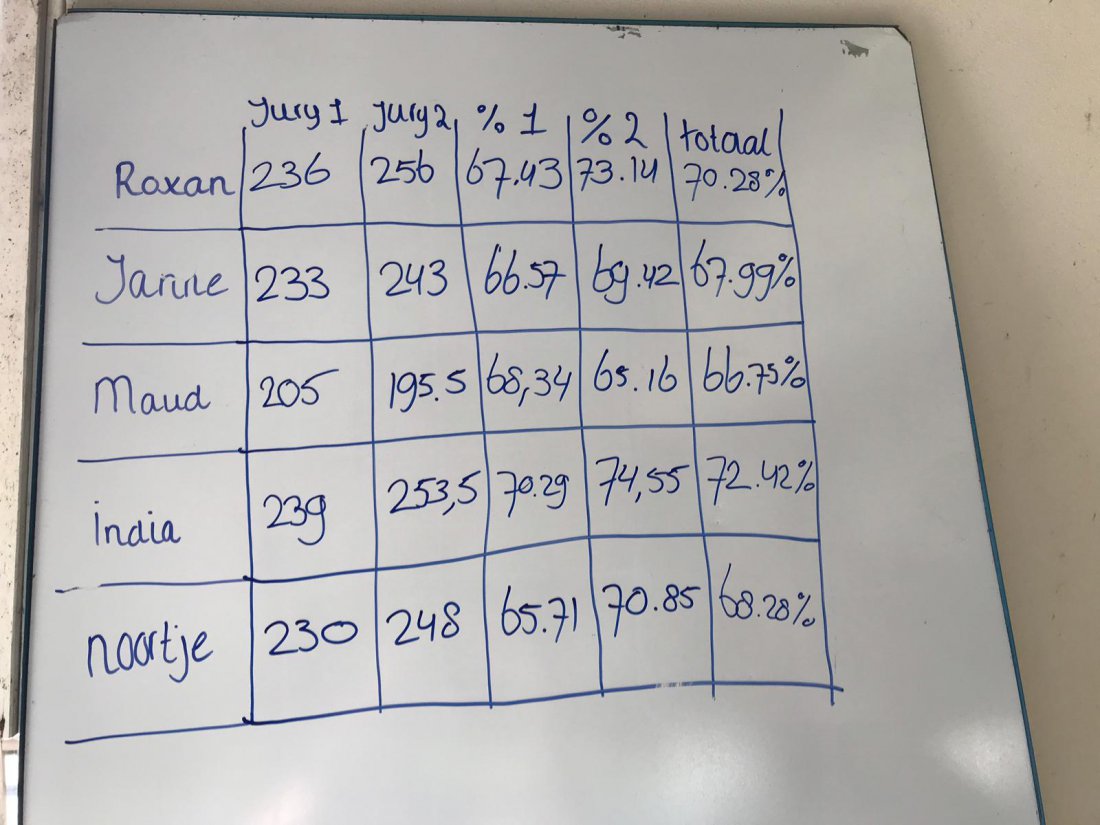 Jury 1 Jury 2 % 1 % 2 totaal
Roxan 236 256 67.43 73.14 70.28%
Janne 233 243 66.57 69.42 67.99%
Maud 205 195.5 68,34 65.16 66.75%
india 239 253,5 70.29 74,55 72.42%
noortje 230 248 65.71 70.85 68.28%